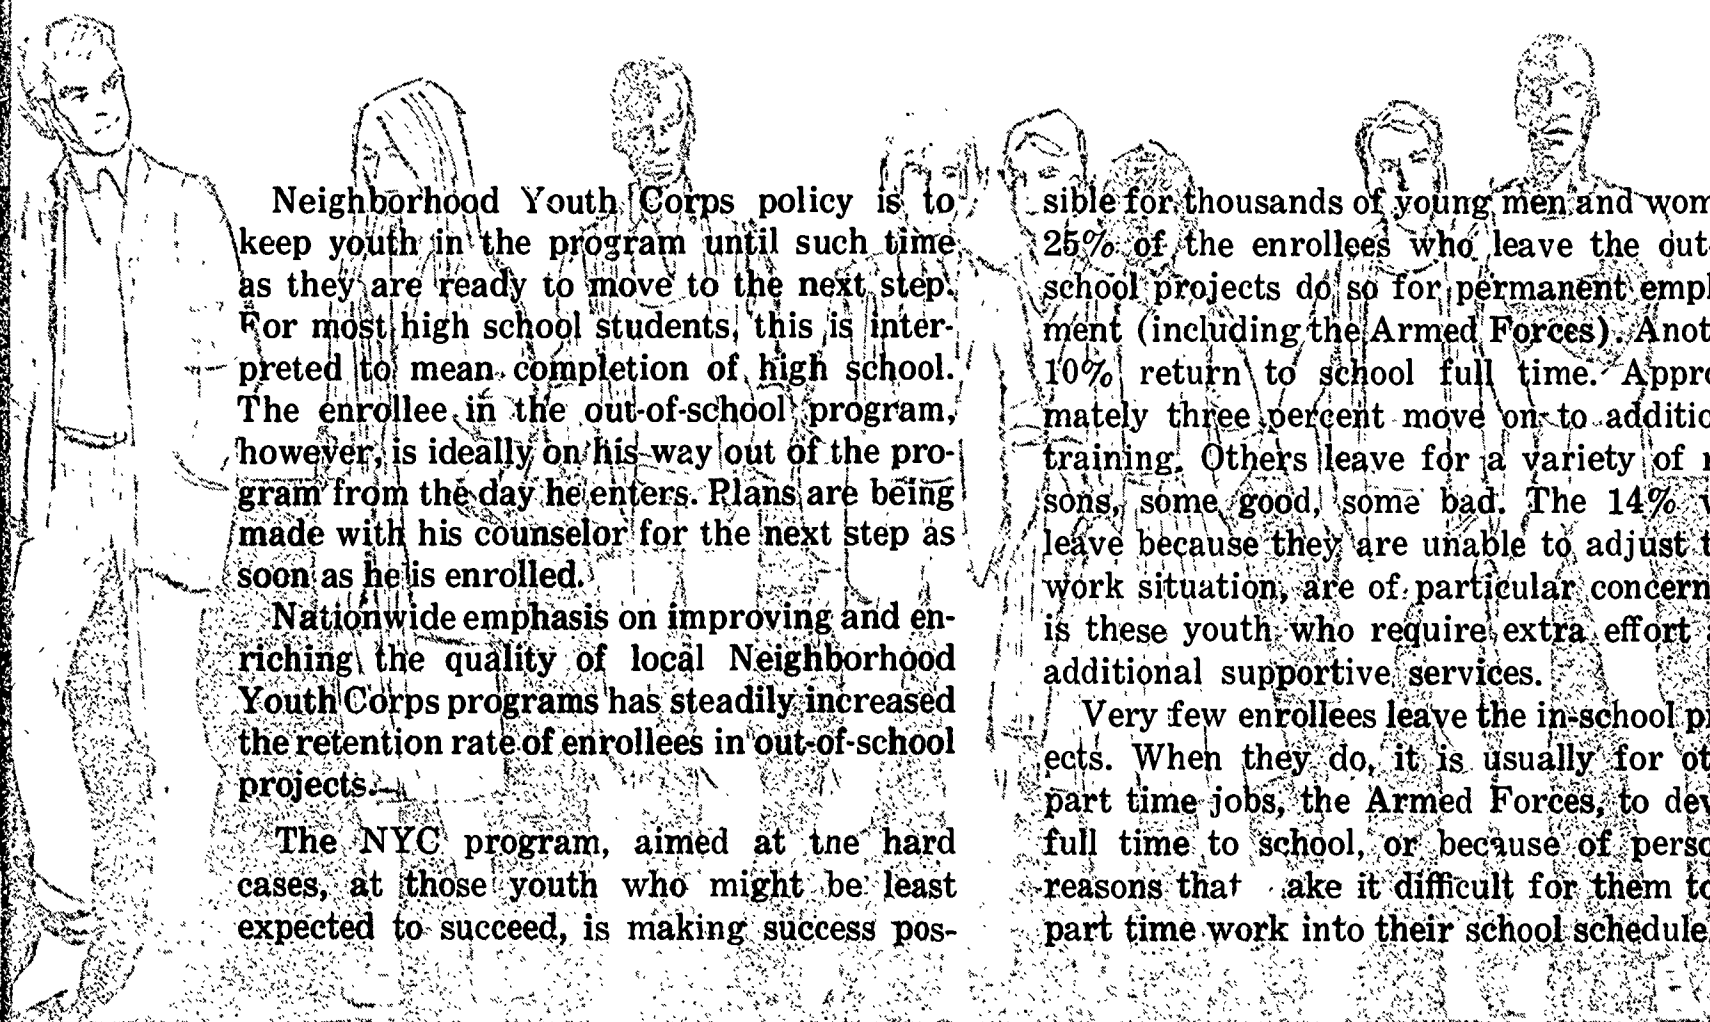 Neighborhood Youth Corps policy is to
keep youth in the program until such time
as they are ready to move to the next step.
For most high school students, this is inter-
preted to mean completion of high school.
The enrollee in the out-of-school program,
however, is ideally on his way out of the pro-
gram from the day he enters. Plans are being
made with his counselor for the next step as
soon as he is enrolled.
Nationwide emphasis on improving and en-
riching the quality of local Neighborhood
Youth Corps programs has steadily increased
the retention rate of enrollees in out-of-school
projects.
The NYC program, aimed at the hard
cases, at those youth who might be least
expected to succeed, is making success pos-
sible for thousands of young men and wom
25% of the enrollees who leave the out-
school projects do so for permanent empl
ment (including the Armed Forces). Anot
10% return to school full time. Appro
mately three percent move on to additio
training. Others leave for a variety of r
sons, some good, some bad. The 14% w
leave because they are unable to adjust t
work situation, are of particular concern
is these youth who require extra effort a
additional supportive services.
Very few enrollees leave the in-school pr
ects. When they do, it is usually for ot
part time jobs, the Armed Forces, to dev
full time to school, or because of perso
reasons that ake it difficult for them to
part time work into their school schedule